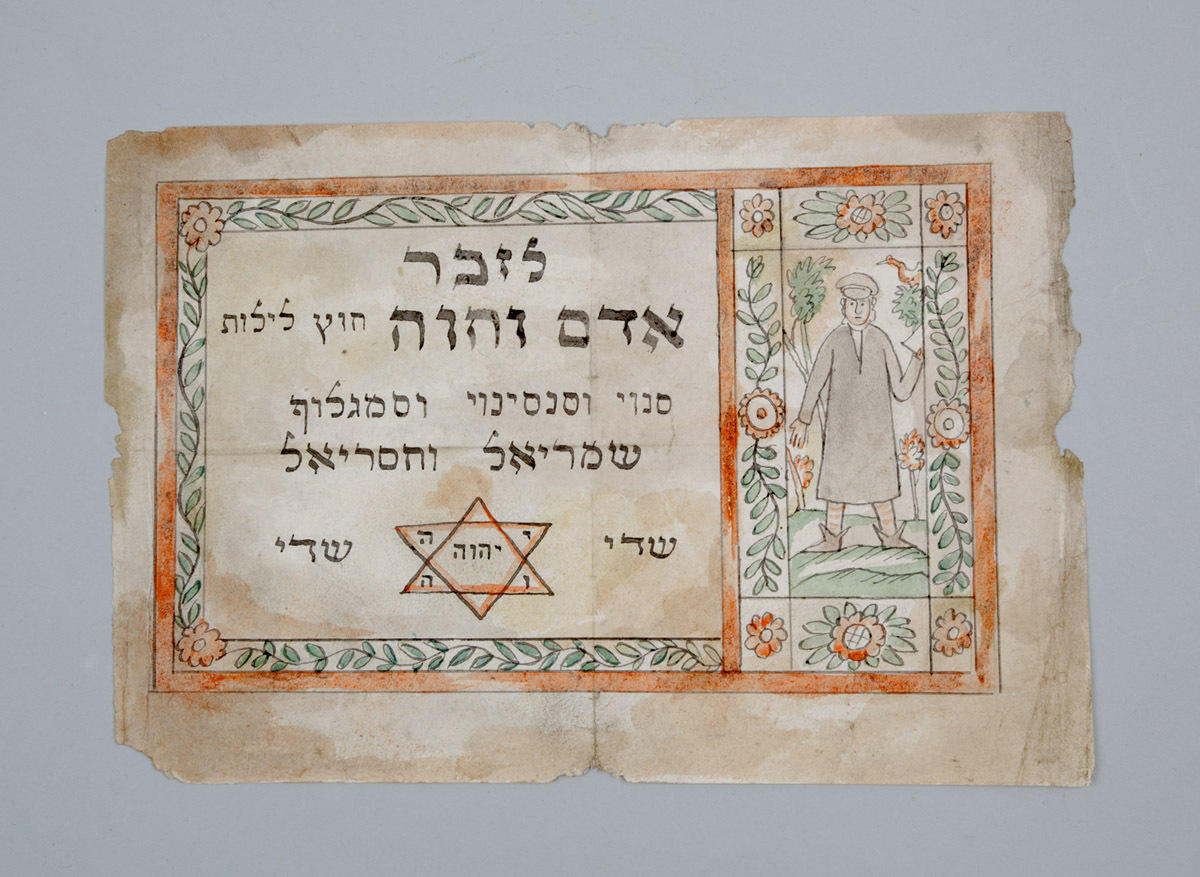 לזכר
אדם וחוה חוץ לילות
סנוי וסנסינוי וסמגלוף
שמריאל וחסריאל
י ה
שדי יהוה שדי
ו ה